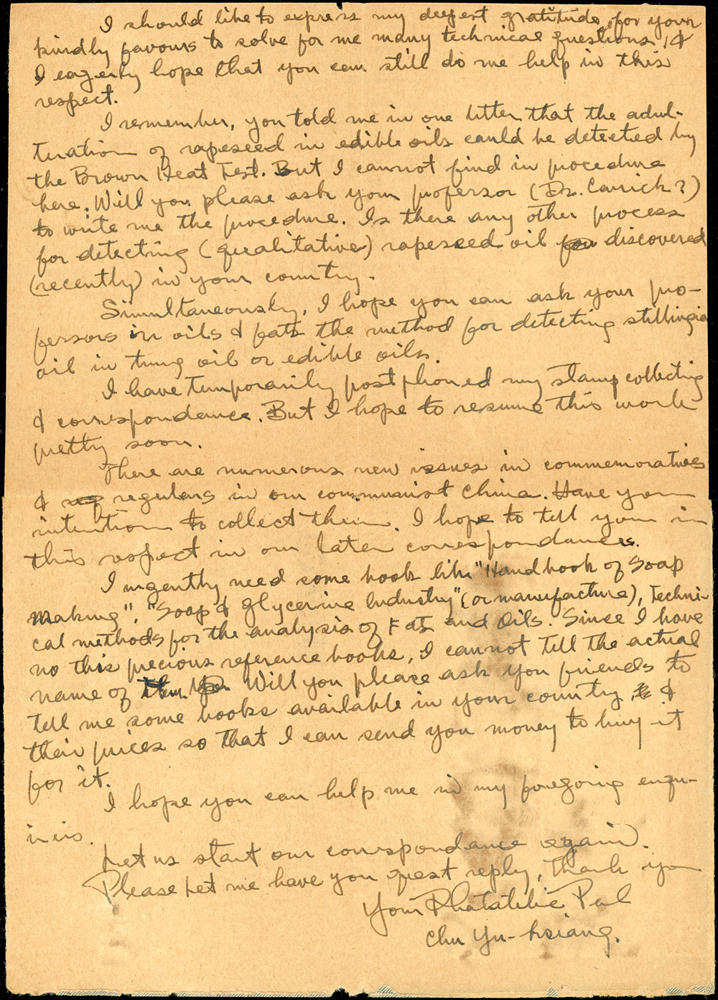 I should like to express my deepest gratitude, for your
kindly favours to solve for me many technical questions, &
I eagerly hope that you can still do me help in this
respect.
I remember, you told me in one letter that the adul-
turation of rapeseed in edible oils could be detected by
the Brown Heat Test. But I cannot find in procedure
here. Will you please ask your professor (Dr. Carrick?)
to write me the procedure. Is there any other process
for detecting (qualitative) rapeseed oil discovered
(recently) in your country.
Simultaneously, I hope you can ask your pro-
fessors in oils & fats the method for detecting stillingia
oil in tung oil or edible oils.
I have temporarily postphoned my stamp collecting
& correspondance. But I hope to resume this work
pretty soon.
There are numerous new issues in commemoratives
& regulars in our communist China. Have you
intention to collect them. I hope to tell you in
this respect in our later correspondances.
I urgently need some book like "Handbook of Soap
Making", "Soap & Glycerine Industry" (or manufacture), Techni-
cal methods for the analysis of Fats and Oils. Since I have
no this precious reference books, I cannot tell the actual
name of them. Will you please ask you friends to
tell me some books available in your country, &
their prices so that I can send you money to buy it
for it.
I hope you can help me in my foregoing enqu-
iries.
Let us start our correspondance again.
Please let me have you reply, Thank you
Your Phatatelic Pal
Chu Yu-hsiang.